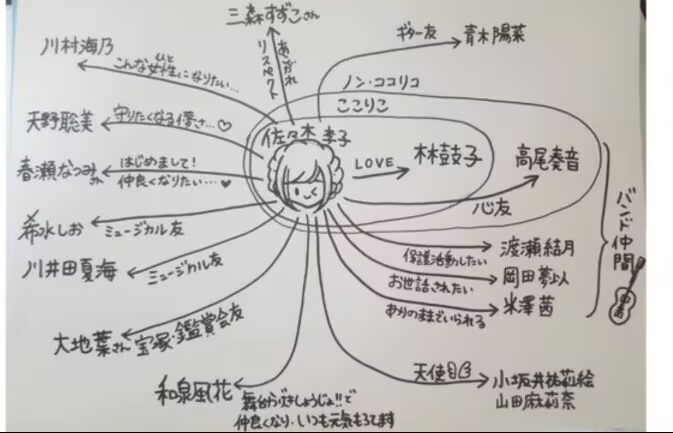 三森すずこさん
あこがれ
リスペクト
ギター友
青木陽菜
川村海乃
こんな女性になりたい…
ひと
ノン・ココリコ
ここりこ
天野聡美
守りたくなる儚さ…♡
佐々木李子
LOVE
林鼓子
高尾奏音
心友
春瀬なつみ
はじめまして!
仲良くなりたい…♥
希水しお
ミュージカル友
川井田夏海
ミュージカル友
大地葉さん
宝塚・鑑賞会友
和泉風花
舞台がずきしょうじょ!!で
仲良くなり、いつも元気もろてます
保護活動したい
渡瀬結月
お世話されたい
岡田夢以
ありのままでいられる
米澤茜
バンド仲間
天使
小坂井祐莉絵
山田麻莉奈